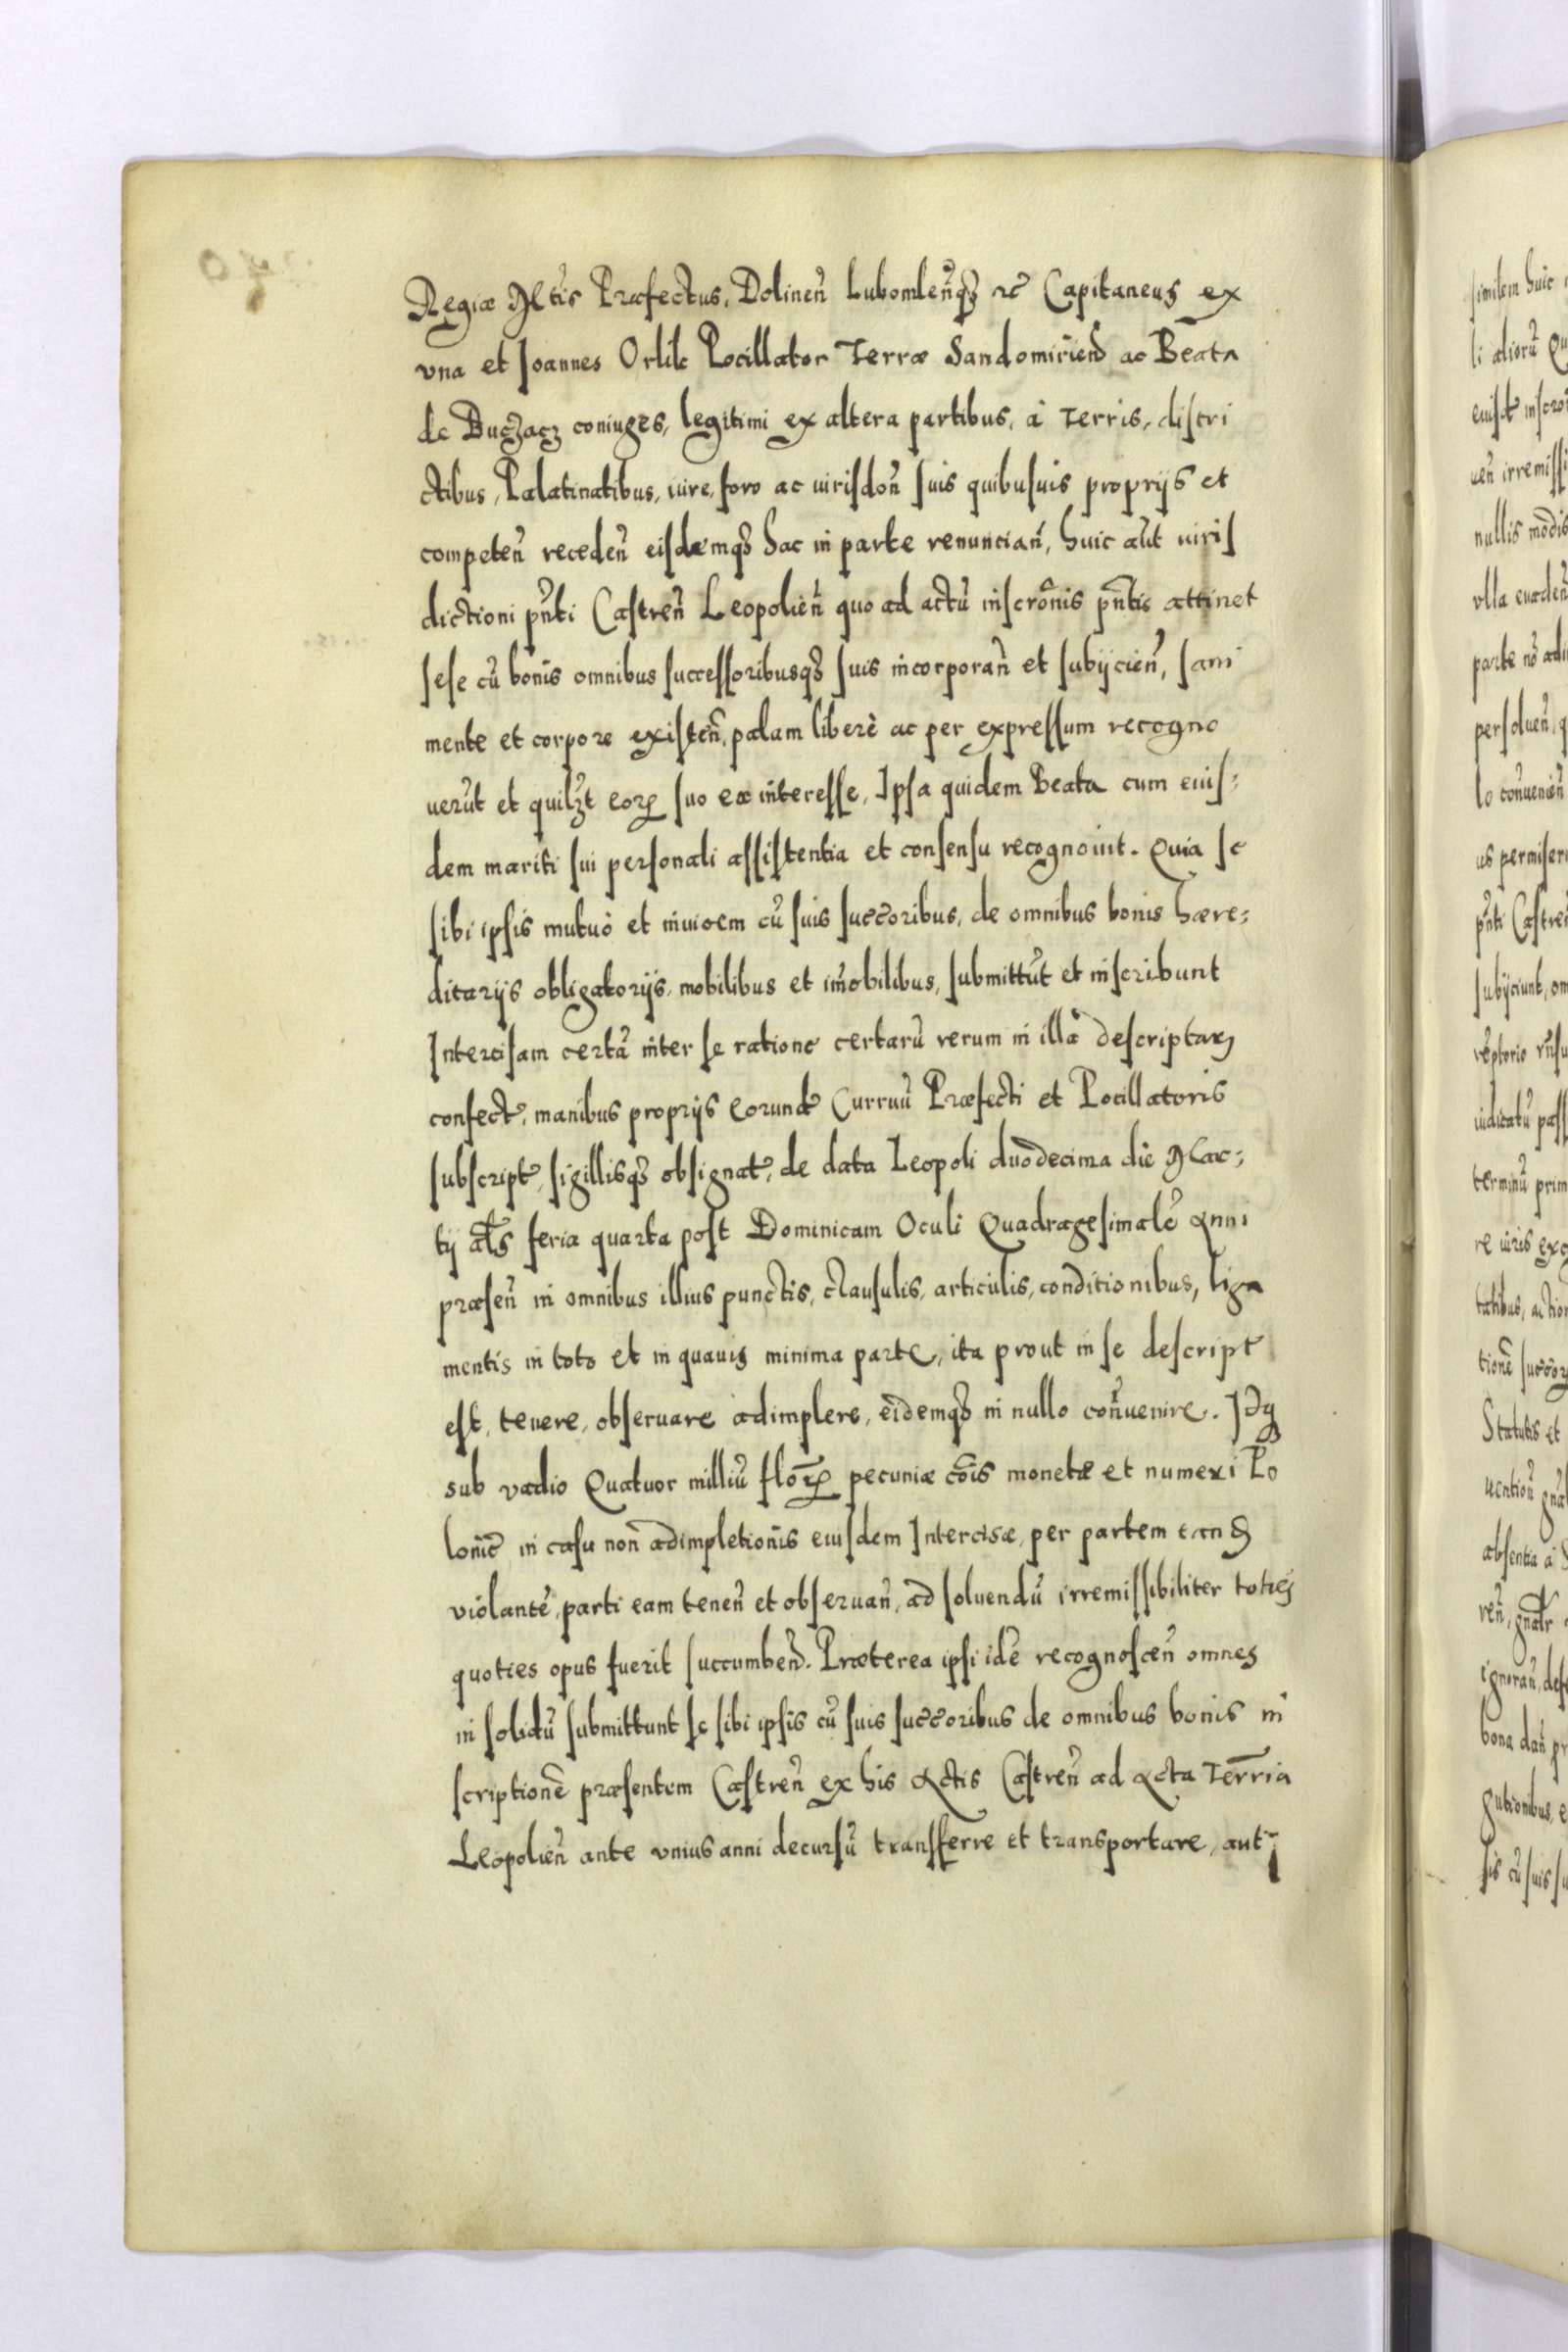 Regiæ Mtis Præfectus, Dolineñ Lubomleñqʒ rc Capitaneus ex
vna et Joannes Orlik Pocillator Terræ Sandomiriens ac Beata
de Buczacz coniuges, legitimi ex altera partibus, à Terris, distri
ctibus, Palatinatibus, iure, foro ac iurisdoñ suis quibusuis proprijs et
competeñ recedeñ eisdemqʒ hac in parte renuncian̄, huic aūt iuris
dictioni pn̄ti Castreñ Leopolieñ quo ad actū inscrōnis pn̄tis attinet
sese cū bonis omnibus successoribusqʒ suis incorporan̄ et subijcien̄, sani
mente et corpore existen̄, palam liberè ac per expressum recogno
uerūt et quilʒt eorꝝ suo ex interesse, Ipsa quidem Beata cum eius:
dem mariti sui personali assistentia et consensu recognouit. Quia se
sibi ipsis mutuò et inuicem cū suis succoribus, de omnibus bonis hære:
ditarijs obligatorijs, mobilibus et im̄obilibus, submittūt et inscribunt
Intercisam certā inter se ratione certarū rerum in illa descriptarꝝ
confect, manibus proprijs eorund Curruū Præfecti et Pocillatoris
subscript, sigillisqʒ obsignat, de data Leopoli duodecima die Mar:
tij als feria quarta post Dominicam Oculi Quadragesimalē Anni
præsen̄ in omnibus illius punctis, clausulis, articulis, conditionibus, liga
mentis in toto et in quauis minima parte, ita prout in se descript
est, tenere, obseruare adimplere, eidemqʒ in nullo con̄uenire. Idqʒ
sub vadio Quatuor milliū florꝝ pecuniæ cōis monetæ et numeri Po
lonic in casu non adimpletionis eiusdem Intercisæ, per partem eand
violantē, parti eam tenen̄ et obseruan̄, ad soluendū irremissibiliter toties
quoties opus fuerit succumbend. Præterea ipsi idē recognoscen̄ omnes
in solidū submittunt se sibi ipsis cū suis succoribus de omnibus bonis in
scriptionē præsentem Castreñ ex his Actis Castreñ ad Acta Terria
Leopolieñ ante vnius anni decursū transferre et transportare, aut